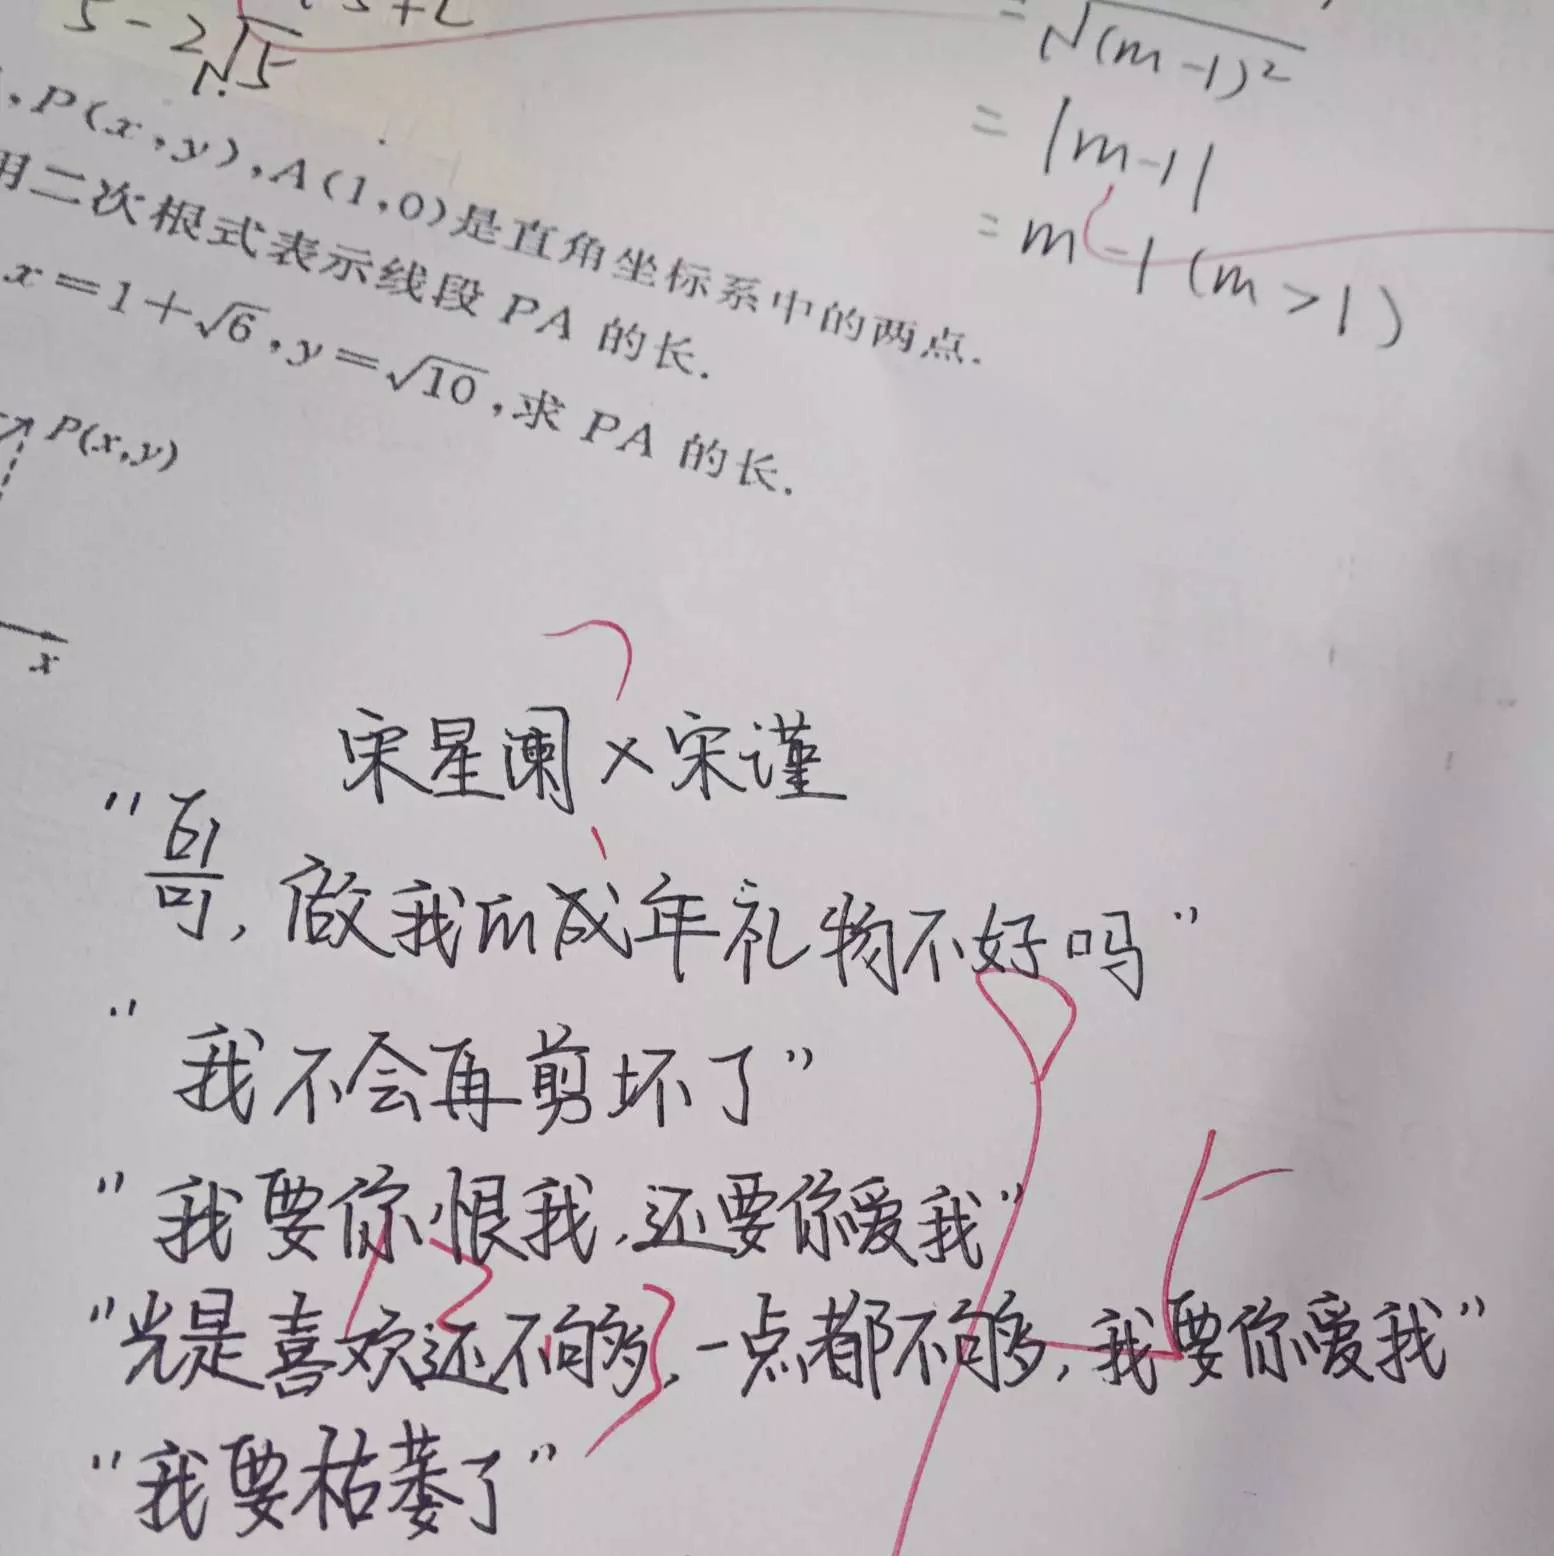 5-2√5
=√(m-1)²
=|m-1|
=m-1(m>1)
,P(x,y),A(1,0)是直角坐标系中的两点.
用二次根式表示线段PA的长.
x=1+√6,y=√10,求PA的长.
P(x,y)
x
宋星阑×宋谨
“哥,做我的成年礼物不好吗”
“我不会再剪坏了”
“我要你恨我,还要你爱我”
“光是喜欢还不够,一点都不够,我要你爱我”
“我要枯萎了”